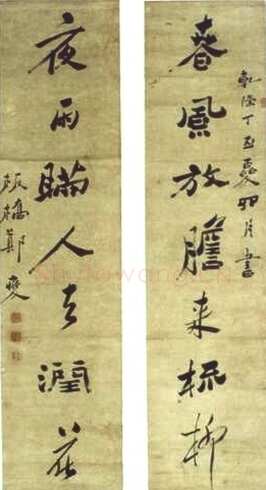 乾隆丁丑 卯月書
春風放膽来梳柳
夜雨瞞人去潤花
板橋鄭燮